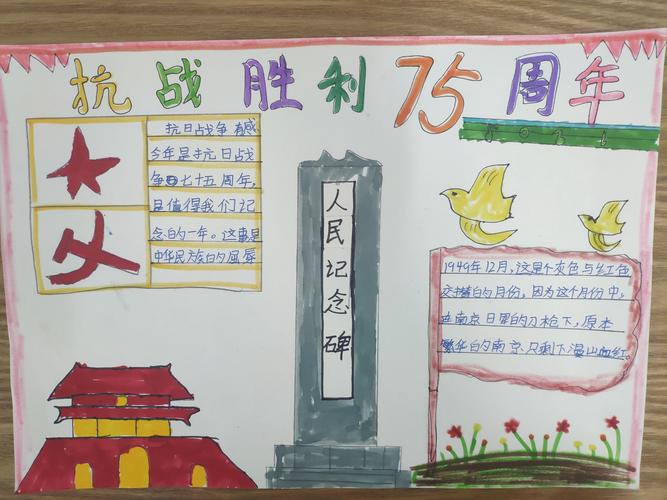 抗战胜利75周年
抗日战争有感
今年是抗日战
争七十五周年,
是值得我们记
念的一年。这事是
中华民族的屈辱
人民记念碑
1949年12月,这是个灰色与红色
交撞的月份,因为这个月份中,
在南京日军的刀枪下,原本
繁华的南京只剩下漫山血红。